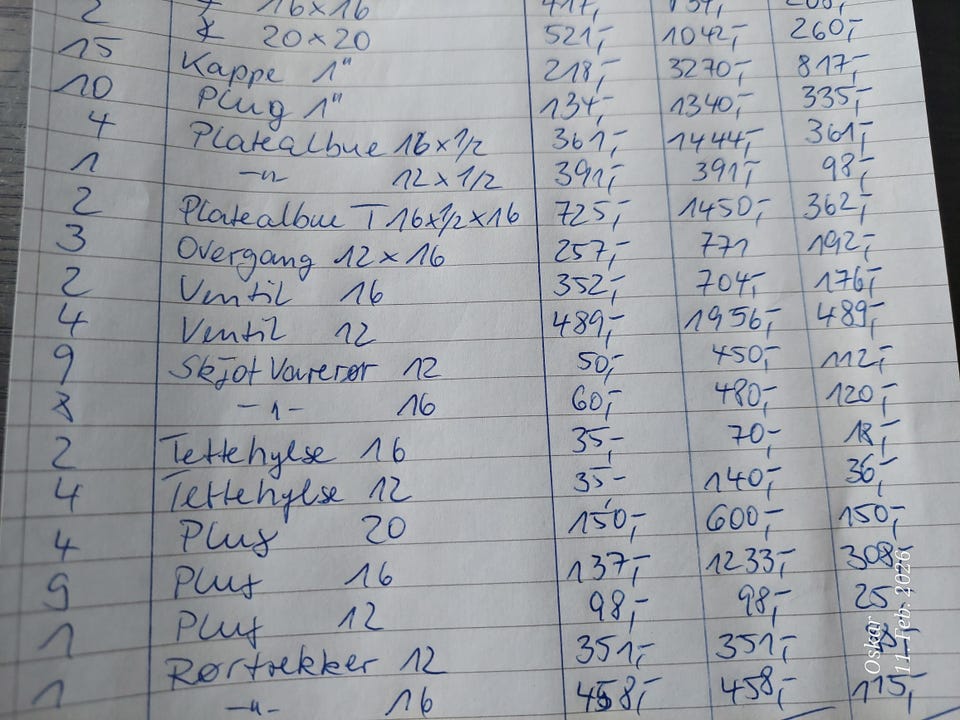 16×16 417,-
2 20×20 521,- 1042,- 260,-
15 Kappe 1" 218,- 3270,- 817,-
10 Plug 1" 134,- 1340,- 335,-
4 Platealbue 16×1/2 361,- 1444,- 361,-
1 -"- 12×1/2 391,- 391,- 98,-
2 Platealbue T 16×1/2×16 725,- 1450,- 362,-
3 Overgang 12×16 257,- 771 192,-
2 Ventil 16 352,- 704,- 176,-
4 Ventil 12 489,- 1956,- 489,-
9 Skjøt Varerør 12 50,- 450,- 112,-
8 -"- 16 60,- 480,- 120,-
2 Tettehylse 16 35,- 70,- 18,-
4 Tettehylse 12 35,- 140,- 36,-
4 Plug 20 150,- 600,- 150,-
9 Plug 16 137,- 1233,- 308,-
1 Plug 12 98,- 98,- 25
1 Rørtrekker 12 351,- 351,-
-"- 16 458,- 458,- 115,-
Oskar
11. Feb. 2026